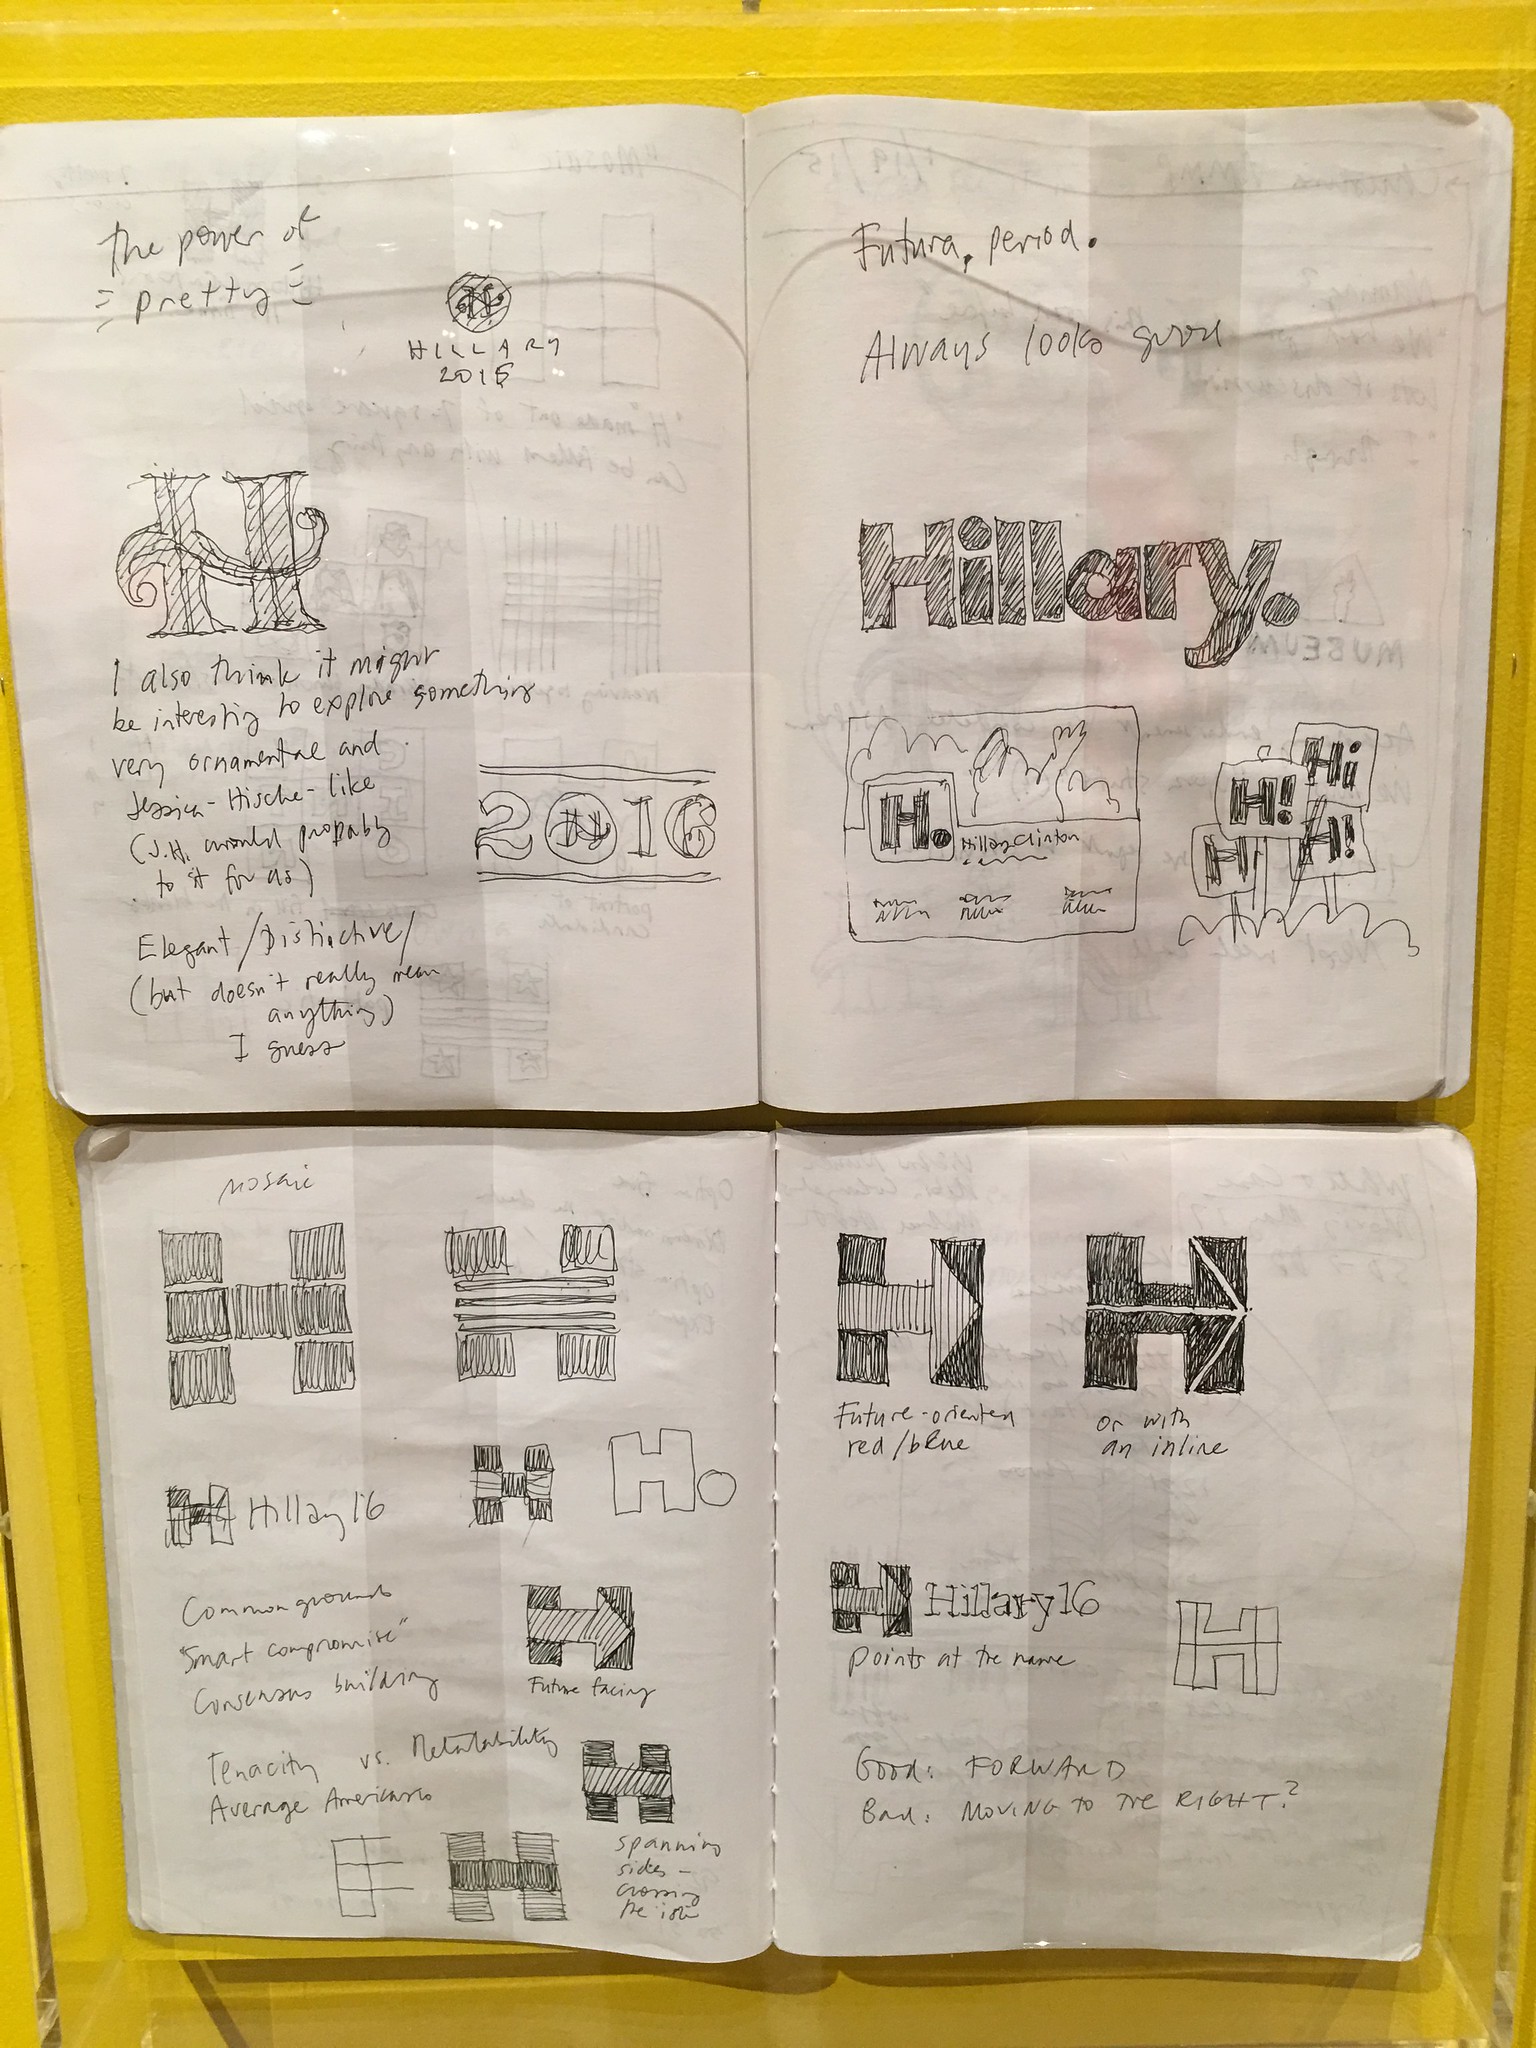 The power of
= pretty =
HILLARY
2016
H
I also think it might
be interesting to explore something
very ornamental and
Jessica-Hische-like
(J.H. would propably
to it for us)
2016
Elegant/Distinctive/
(but doesn't really mean
anything)
I guess
Futura, period.
Always looks good
Hillary.
H.
Hillary Clinton
Hi
H!
H
H!
Mosaic
H
H
H
H.
H Hillary16
Common grounds
"Smart compromise"
Consensus building
H
Future facing
Tenacity vs. Relatability
Average Americans
H
H
spanning
sides –
crossing
the
H
Future-oriented
red/blue
H
or with
an inline
H Hillary16
points at the name
H
Good: FORWARD
Bad: MOVING TO THE RIGHT?